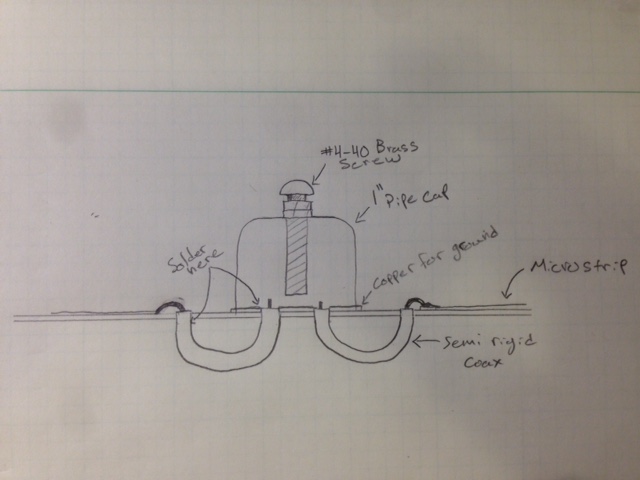 #4-40 Brass
Screw
1" Pipe Cap
Solder
here
Copper for ground
Microstrip
Semi rigid
Coax